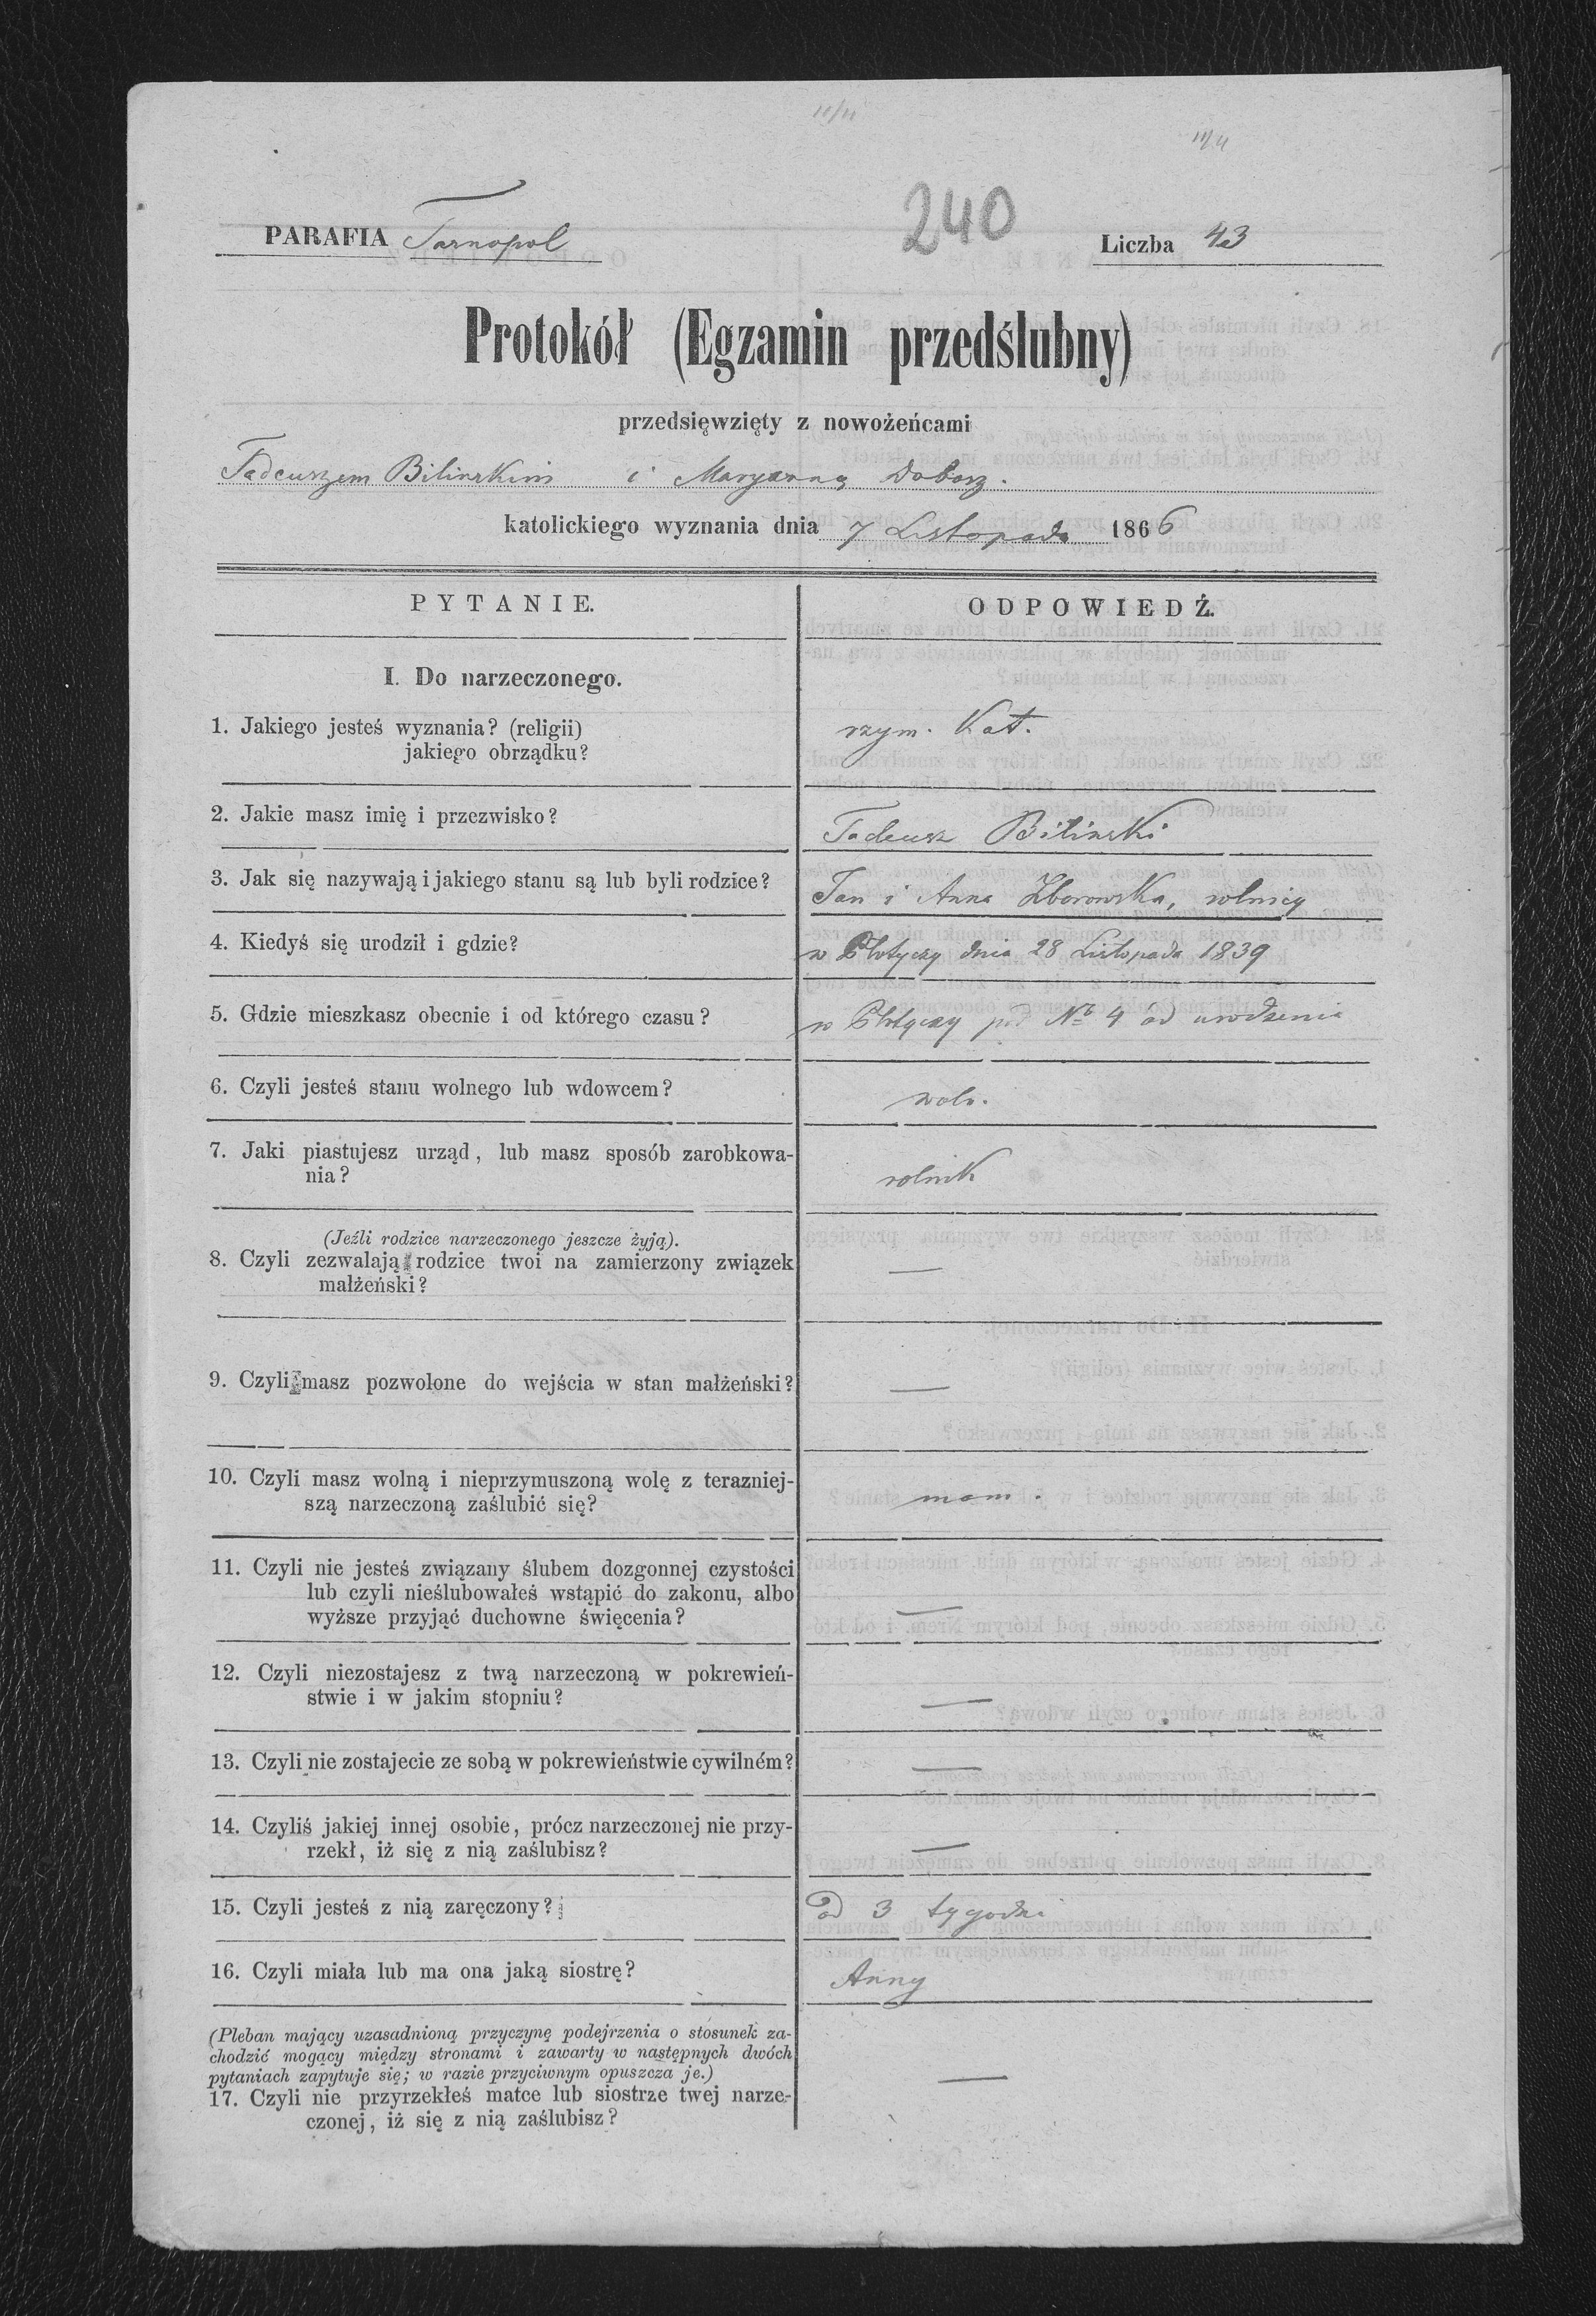 240
PARAFIA Tarnopol Liczba 43
Protokół (Egzamin przedślubny)
przedsięwzięty z nowożeńcami
Tadeuszem Bilinskim i Maryanną Dobosz.
katolickiego wyznania dnia 7 Listopada 1866
PYTANIE. ODPOWIEDŹ.
I. Do narzeczonego.
1. Jakiego jesteś wyznania? (religii)
jakiego obrządku?
rzym. Kat.
2. Jakie masz imię i przezwisko?
Tadeusz Bilinski
3. Jak się nazywają i jakiego stanu są lub byli rodzice?
Jan i Anna Zborowska, rolnicy
4. Kiedyś się urodził i gdzie?
w Płotyczy dnia 28 Listopada 1839
5. Gdzie mieszkasz obecnie i od którego czasu?
w Płotyczy pod No 4 od urodzenia
6. Czyli jesteś stanu wolnego lub wdowcem?
woln.
7. Jaki piastujesz urząd, lub masz sposób zarobkowa-
nia?
rolnik
(Jeźli rodzice narzeczonego jeszcze żyją).
8. Czyli zezwalają rodzice twoi na zamierzony związek
małżeński?
—
9. Czyli masz pozwolone do wejścia w stan małżeński?
—
10. Czyli masz wolną i nieprzymuszoną wolę z terazniej-
szą narzeczoną zaślubić się?
mam.
11. Czyli nie jesteś związany ślubem dozgonnej czystości
lub czyli nieślubowałeś wstąpić do zakonu, albo
wyższe przyjąć duchowne święcenia?
—
12. Czyli niezostajesz z twą narzeczoną w pokrewień-
stwie i w jakim stopniu?
—
13. Czyli nie zostajecie ze sobą w pokrewieństwie cywilném?
—
14. Czyliś jakiej innej osobie, prócz narzeczonej nie przy-
rzekł, iż się z nią zaślubisz?
—
15. Czyli jesteś z nią zaręczony?
Od 3 tygodni
16. Czyli miała lub ma ona jaką siostrę?
Anny
(Pleban mający uzasadnioną przyczynę podejrzenia o stosunek za-
chodzić mogący między stronami i zawarty w następnych dwóch
pytaniach zapytuje się; w razie przyciwnym opuszcza je.)
17. Czyli nie przyrzekłeś matce lub siostrze twej narze-
czonej, iż się z nią zaślubisz?
—